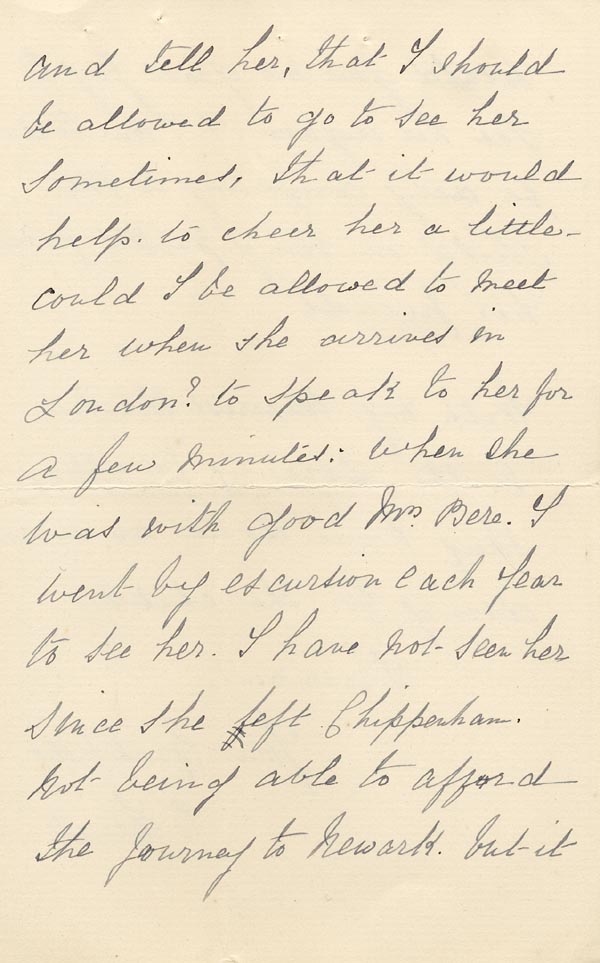 and tell her, that I should
be allowed to go to see her
sometimes, that it would
help. to cheer her a little-
could I be allowed to meet
her when she arrives in
London? to speak to her for
a few minutes: when she
was with good Mrs. Bere. I
went by escursion each year
to see her. I have not seen her
since she left Chippenham.
not being able to afford
the journey to Newark. but it